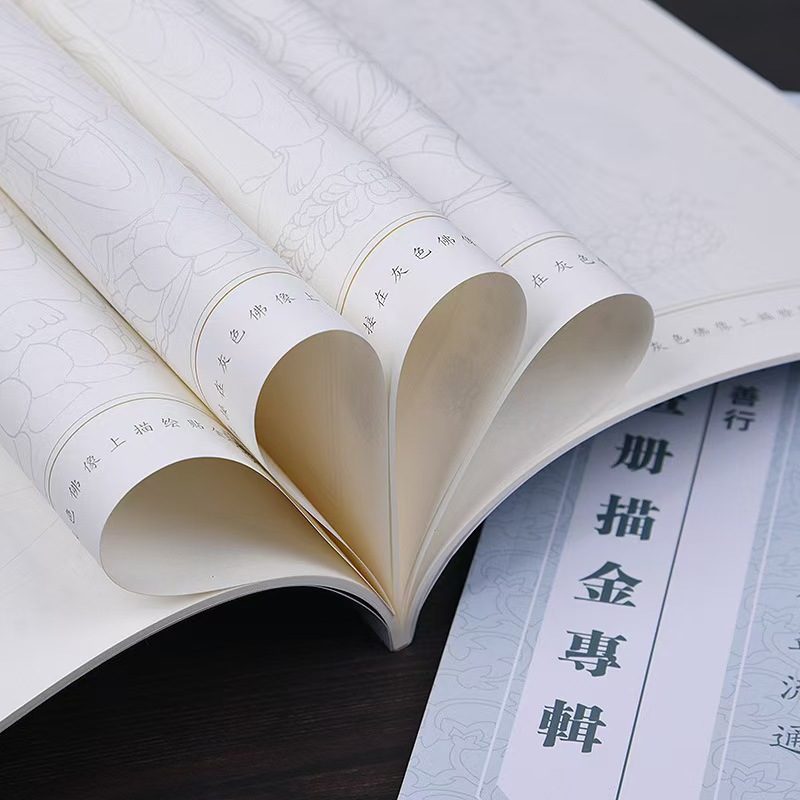 佛像上描绘贴
在灰色佛像上
接在灰色佛像
在灰色佛
灰色佛像上描绘
善行
册描金專輯
流通